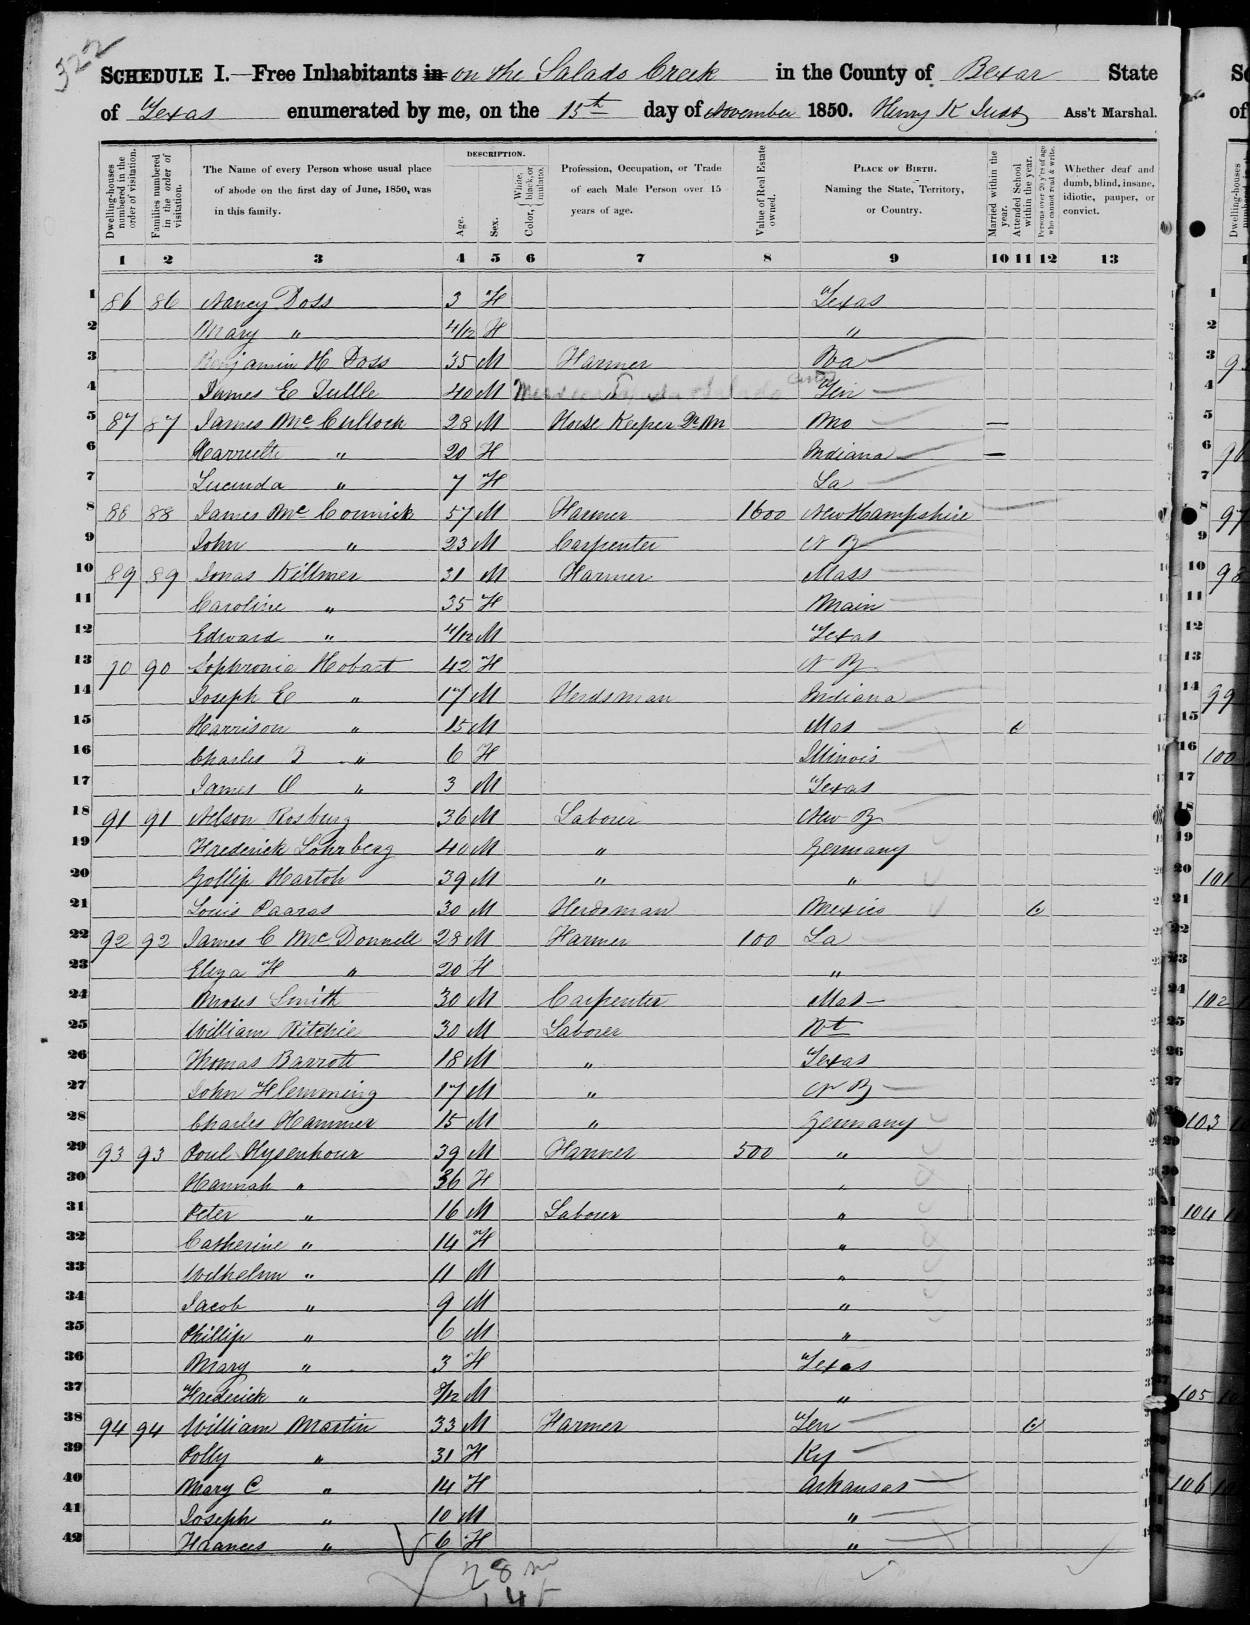 322
SCHEDULE I.—Free Inhabitants in on the Salado Creek in the County of Bexar State
of Texas enumerated by me, on the 15th day of November 1850. Henry K Judd Ass't Marshal.
Dwelling-houses numbered in the order of visitation.
Families numbered in the order of visitation.
The Name of every Person whose usual place of abode on the first day of June, 1850, was in this family.
DESCRIPTION.
Age.
Sex.
Color, White, black, or mulatto.
Profession, Occupation, or Trade of each Male Person over 15 years of age.
Value of Real Estate owned.
PLACE OF BIRTH. Naming the State, Territory, or Country.
Married within the year.
Attended School within the year.
Persons over 20 y'rs of age who cannot read & write.
Whether deaf and dumb, blind, insane, idiotic, pauper, or convict.
1 2 3 4 5 6 7 8 9 10 11 12 13
1 86 86 Nancy Doss 3 F Texas
2 Mary " 4/12 F "
3 Benjamin H Doss 35 M Farmer
4 James E Tuttle 40 M Ten
5 87 87 James McCulloch 28 M Mo —
6 Harriette " 20 F Indiana —
7 Lucinda " 7 F La
8 88 88 James McCormick 57 M Farmer 1600 New Hampshire
9 John " 23 M Carpenter N Y
10 89 89 Jonas Killmer 31 M Farmer Mass
11 Caroline " 35 F Main
12 Edward " 4/12 M Texas
13 90 90 Sophronia Hobart 42 F N Y
14 Joseph E " 17 M Herdsman Indiana
15 Harrison " 15 M Mas
16 Charles " 6 F Illinois
17 James O " 3 M Texas
18 91 91 Nelson Rosburg 36 M Laborer New Y
19 Frederick Lohrberg 40 M " Germany
20 Gollip Hartoh 39 M " "
21 Louis Paaras 30 M Herdsman Mexico
22 92 92 James C McDonnell 28 M Farmer 100 La
23 Eliza H " 20 F "
24 Moses Smith 30 M Carpenter Mas
25 William Ritchie 30 M Laborer Vt
26 Thomas Barrott 18 M " Texas
27 John Flemming 17 M " N Y
28 Charles Hammer 15 M " Germany
29 93 93 Poul Hysenhour 39 M Farmer 500 "
30 Hannah " 36 F "
31 Peter " 16 M Laborer "
32 Catherine " 14 F "
33 Wilhelm " 11 M "
34 Jacob " 9 M "
35 Phillip " 6 M "
36 Mary " 3 F Texas
37 Frederick " M "
38 94 94 William Martin 33 M Farmer Ten
39 Polly " 31 F Ky
40 Mary C " 14 F Arkansas
41 Joseph " 10 M "
42 Frances " 6 F "
28 m
14 f